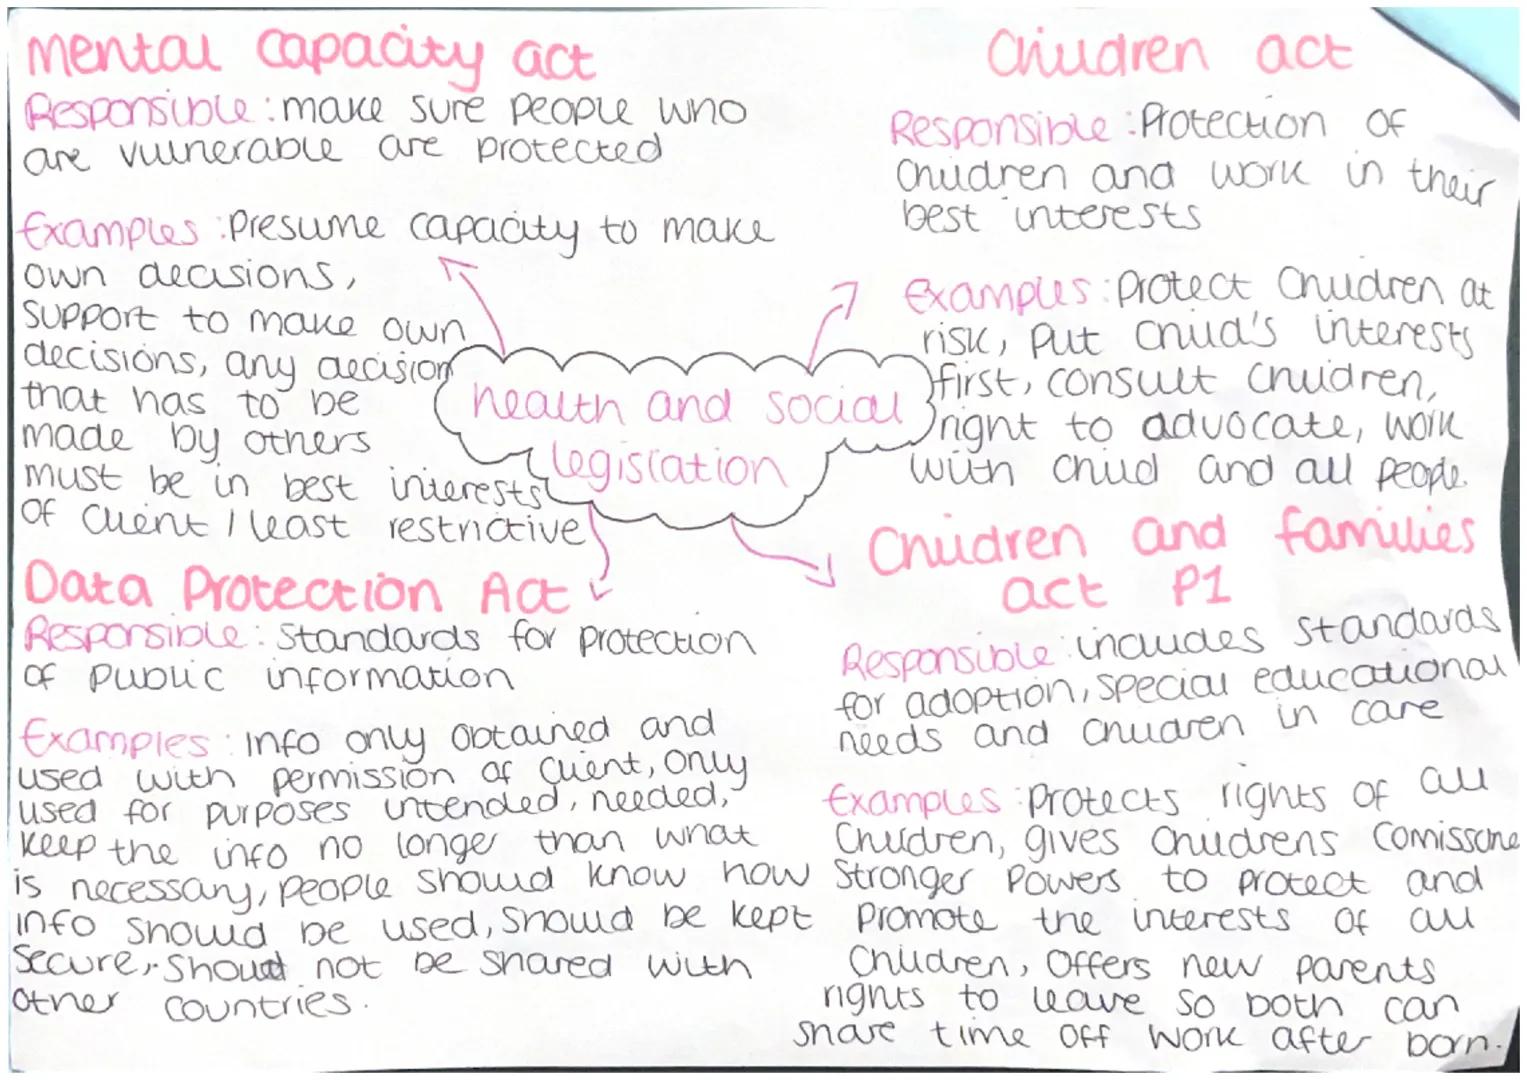 Mental capacity act
Responsible: make sure people who
are vulnerable are protected
Examples: Presume capacity to make
own decisions,
support to make own
decisions, any decision
that has to be
made by others
must be in best interests
of client / least restrictive
Children act
Responsible: Protection of
Children and work in their
best interests
Examples: Protect Children at
risk, put child's interests
first, consult children,
right to advocate, work
with child and all people.
health and social
legislation
Data Protection Act
Responsible: Standards for protection
of public information
Examples: info only obtained and
used with permission of client, only
used for purposes intended, needed,
keep the info no longer than what
is necessary, people should know how
info should be used, should be kept
secure, should not be shared with
other countries.
Children and families
act P1
Responsible: includes standards
for adoption, special educational
needs and children in care
Examples: protects rights of all
Children, gives Childrens Comissone
Stronger Powers to protect and
Promote the interests of all
Children, Offers new parents
rights to leave so both can
share time off work after born.